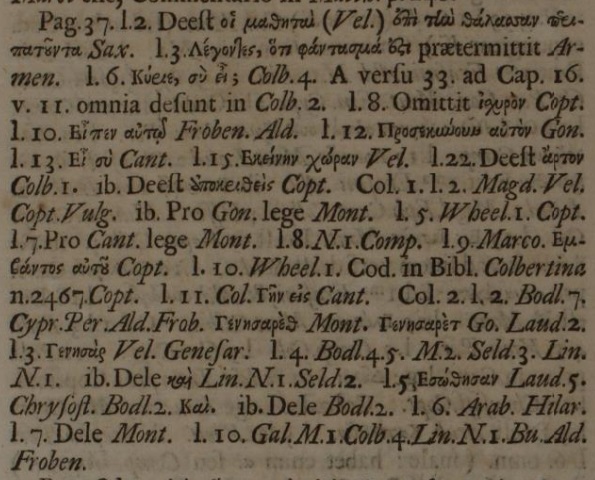 Pag. 37. l. 2. Deest οἱ μαθηταὶ (Vel.) ἐπὶ τὴν θάλασσαν περι-
πατοῦντα Sax. l. 3. Λέγοντες, ὅτι φάντασμά ἐστι prætermittit Ar-
men. l. 6. Κύριε, σὺ εἶ; Colb. 4. A versu 33. ad Cap. 16.
v. 11. omnia desunt in Colb. 2. l. 8. Omittit ἰσχυρὸν Copt.
l. 10. Εἶπεν αὐτῷ Froben. Ald. l. 12. Προσεκύνουν αὐτὸν Gon.
l. 13. Εἶ σὺ Cant. l. 15. Εκείνην χώραν Vel. l. 22. Deest ἄρτον
Colb. 1. ib. Deest ἀποκριθεὶς Copt. Col. 1. l. 2. Magd. Vel.
Copt. Vulg. ib. Pro Gon. lege Mont. l. 5. Wheel. 1. Copt.
l. 7. Pro Cant. lege Mont. l. 8. N. 1. Comp. l. 9. Marco. Εμ-
βάντος αὐτοῦ Copt. l. 10. Wheel. 1. Cod. in Bibl. Colbertina
n. 2467. Copt. l. 11. Col. Γῆν εἰς Cant. Col. 2. l. 2. Bodl. 7.
Cypr. Per. Ald. Frob. Γενησαρὲθ Mont. Γενησαρὲτ Go. Laud. 2.
l. 3. Γενησὰρ Vel. Genesar. l. 4. Bodl. 4. 5. M. 2. Seld. 3. Lin.
N. 1. ib. Dele καὶ Lin. N. 1. Seld. 2. l. 5. Εσώθησαν Laud. 5.
Chrysost. Bodl. 2. Καὶ. ib. Dele Bodl. 2. l. 6. Arab. Hilar.
l. 7. Dele Mont. l. 10. Gal. M. 1. Colb. 4. Lin. N. 1. Bu. Ald.
Froben.